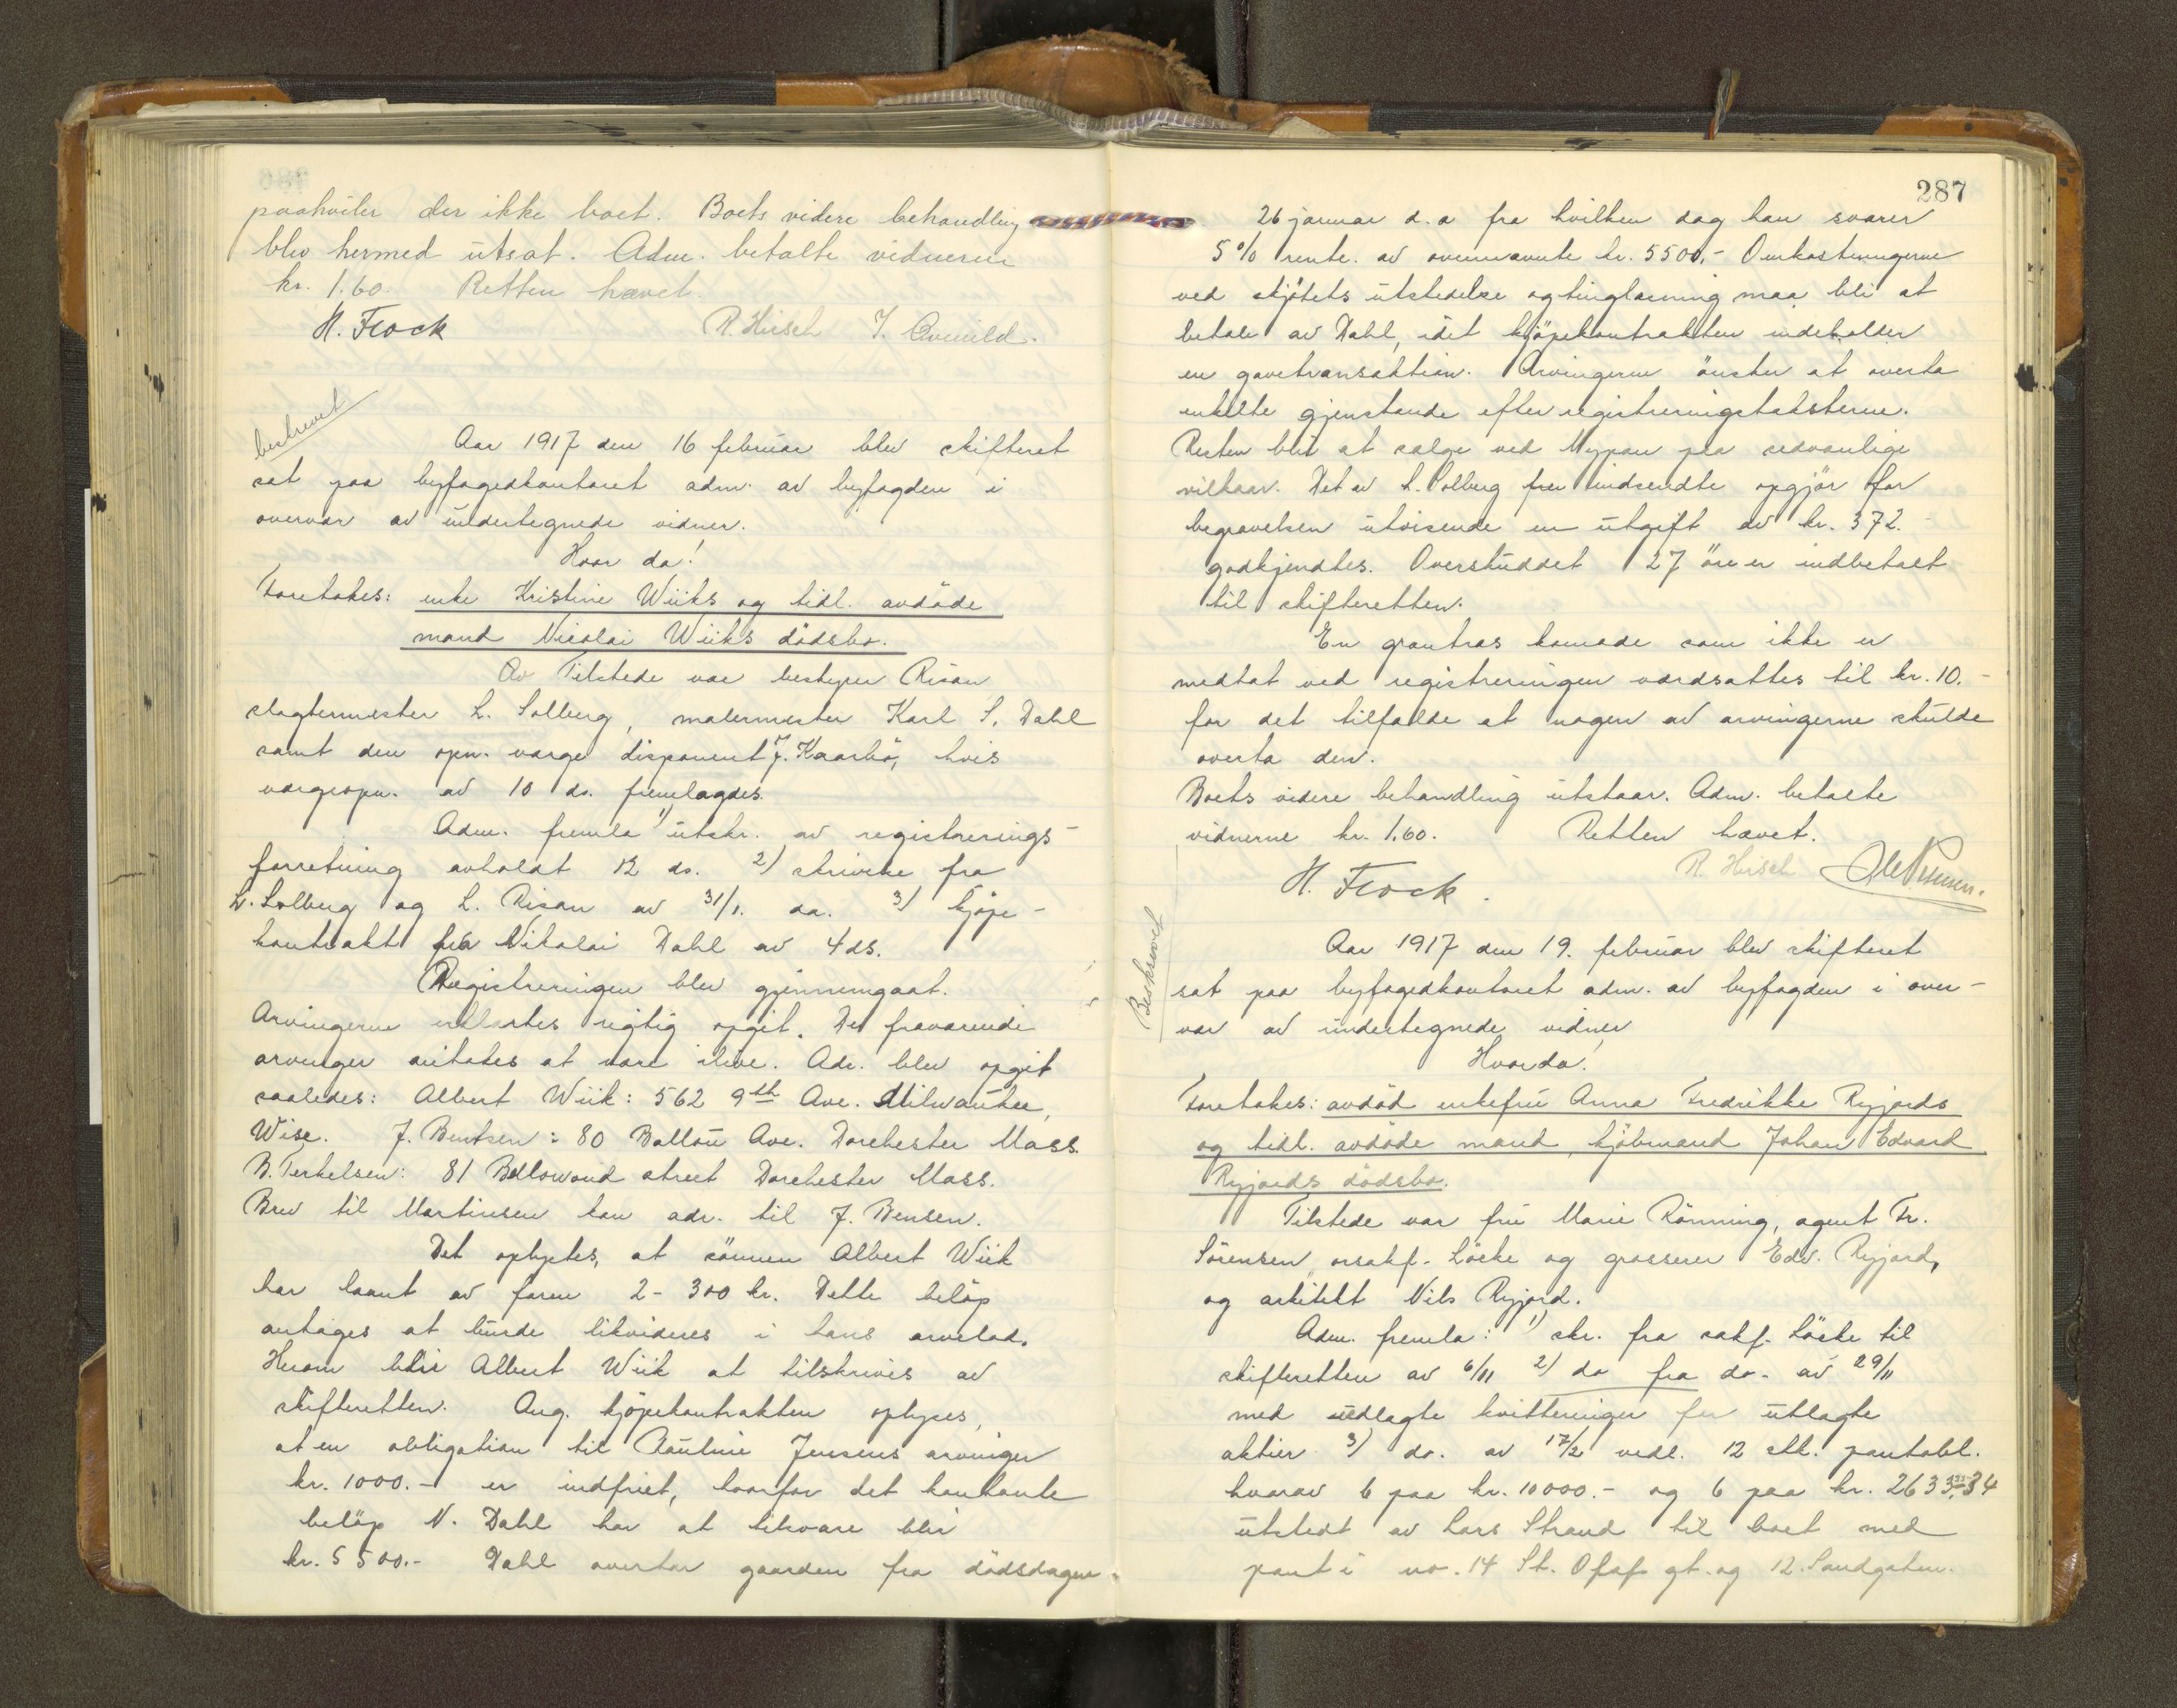 paahviler der ikke boet. Boets videre behandling
blev hermed utsat. Adm. betalte vidnerne
kr. 1.60. Retten hævet.
H. Flock R. Hirsch
beskrevet
Aar 1917 den 16 februar blev skifteret
sat paa byfogedkontoret adm. av byfogden i
overvær av undertegnede vidner.
Hvor da!
Foretokes: enke Kristine Wiiks og tidl. avdöde
mand Nicolai Wiiks dödsbo.
Av Tilstede var bestyrer Risan
slagtermester L. Solberg, malermester Karl S. Dahl
samt den opn. værge disponent J. Kaarbö, hvis
værgeopn. av 10 ds. fremlagdes.
Adm. fremla 1) utskr. av registrerings-
forretning avholdt 12 ds. 2) skrivelse fra
L. Solberg og L. Risan av 31/1. da. 3) kjöpe-
kontrakt fra Nikolai Dahl av 4 ds.
Registreringen blev gjennemgaat.
Arvingerne erklærtes rigtig opgit. De fraværende
arvinger antokes at være ilive. Adr. blev opgit
saaledes: Albert Wiik: 562 9th Ave. Milwaukee,
Wisc. J. Bentsen: 80 Ballou Ave. Dorchester Mass.
N. Terkelsen: 81 street Dorchester Mass.
Brev til Martinsen kan adr. til J. Bensen.
Det oplystes, at sönnen Albert Wiik
har laant av faren 2-300 kr. Dette belöp
antages at burde likvideres i hans arvelod.
Herom blir Albert Wiik at tilskrives av
skifteretten. Ang. kjöpekontrakten oplyses,
at en obligation til Pauline Jensens arvinger
kr. 1000.- er indfriet, hvorfor det kontante
belöp N. Dahl har at tilsvare blir
kr. 5500.- Dahl overtar gaarden fra dödsdagen
287
26 januar d.a fra hvilken dag han svarer
5% rente. av ovennævnte kr. 5500.- Omkostningerne
ved skjötets utstedelse og tinglæsning maa bli at
betale av Dahl, idet kjöpekontrakten indeholder
en gavetransaktion. Arvingerne önsker at overta
enkelte gjenstande efter registreringstaksterne.
Resten blir at sælge ved Mypan paa sedvanlige
vilkaar. Det av L. Solberg indsendte opgjör for
begravelsen utvisende en utgift av kr. 372.-
godkjendtes. Overskuddet 27 öre er indbetalt
til skifteretten.
En kamode som ikke er
medtat ved registreringen værdsattes til kr. 10.-
for det tilfælde at nogen av arvingerne skulde
overta den.
Boets videre behandling utstaar. Adm. betalte
vidnerne kr. 1.60. Retten hævet.
H. Flock. R. Hirsch
Beskrevet
Aar 1917 den 19. februar blev skifteret
sat paa byfogedkontoret adm. av byfogden i over-
vær av undertegnede vidner
Hvor da!
Foretokes: avdöd enkefru Anna Fredrikke Ryjords
og tidl. avdöde mand, kjöbmand Johan Edvard
Ryjords dödsbo.
Tilstede var fru Marie Rönning, agent Fr.
Sörensen, orsakf. Löcke og grosserer Edv. Ryjord,
og arkitekt Nils Ryjord.
Adm. fremla: 1) skr. fra sakf. Löcke til
skifteretten av 6/11 2) do fra do. av 29/11
med vedlagte kvitteringer for utlagte
aktier 3) do. av 17/2 vedl. 12 stk. pantobl.
hvorav 6 paa kr. 10000.- og 6 paa kr. 26333.34
utstedt av Lars Strand til boet med
pant i no. 14 St. Olafs gt. og 12. Sandgaten.